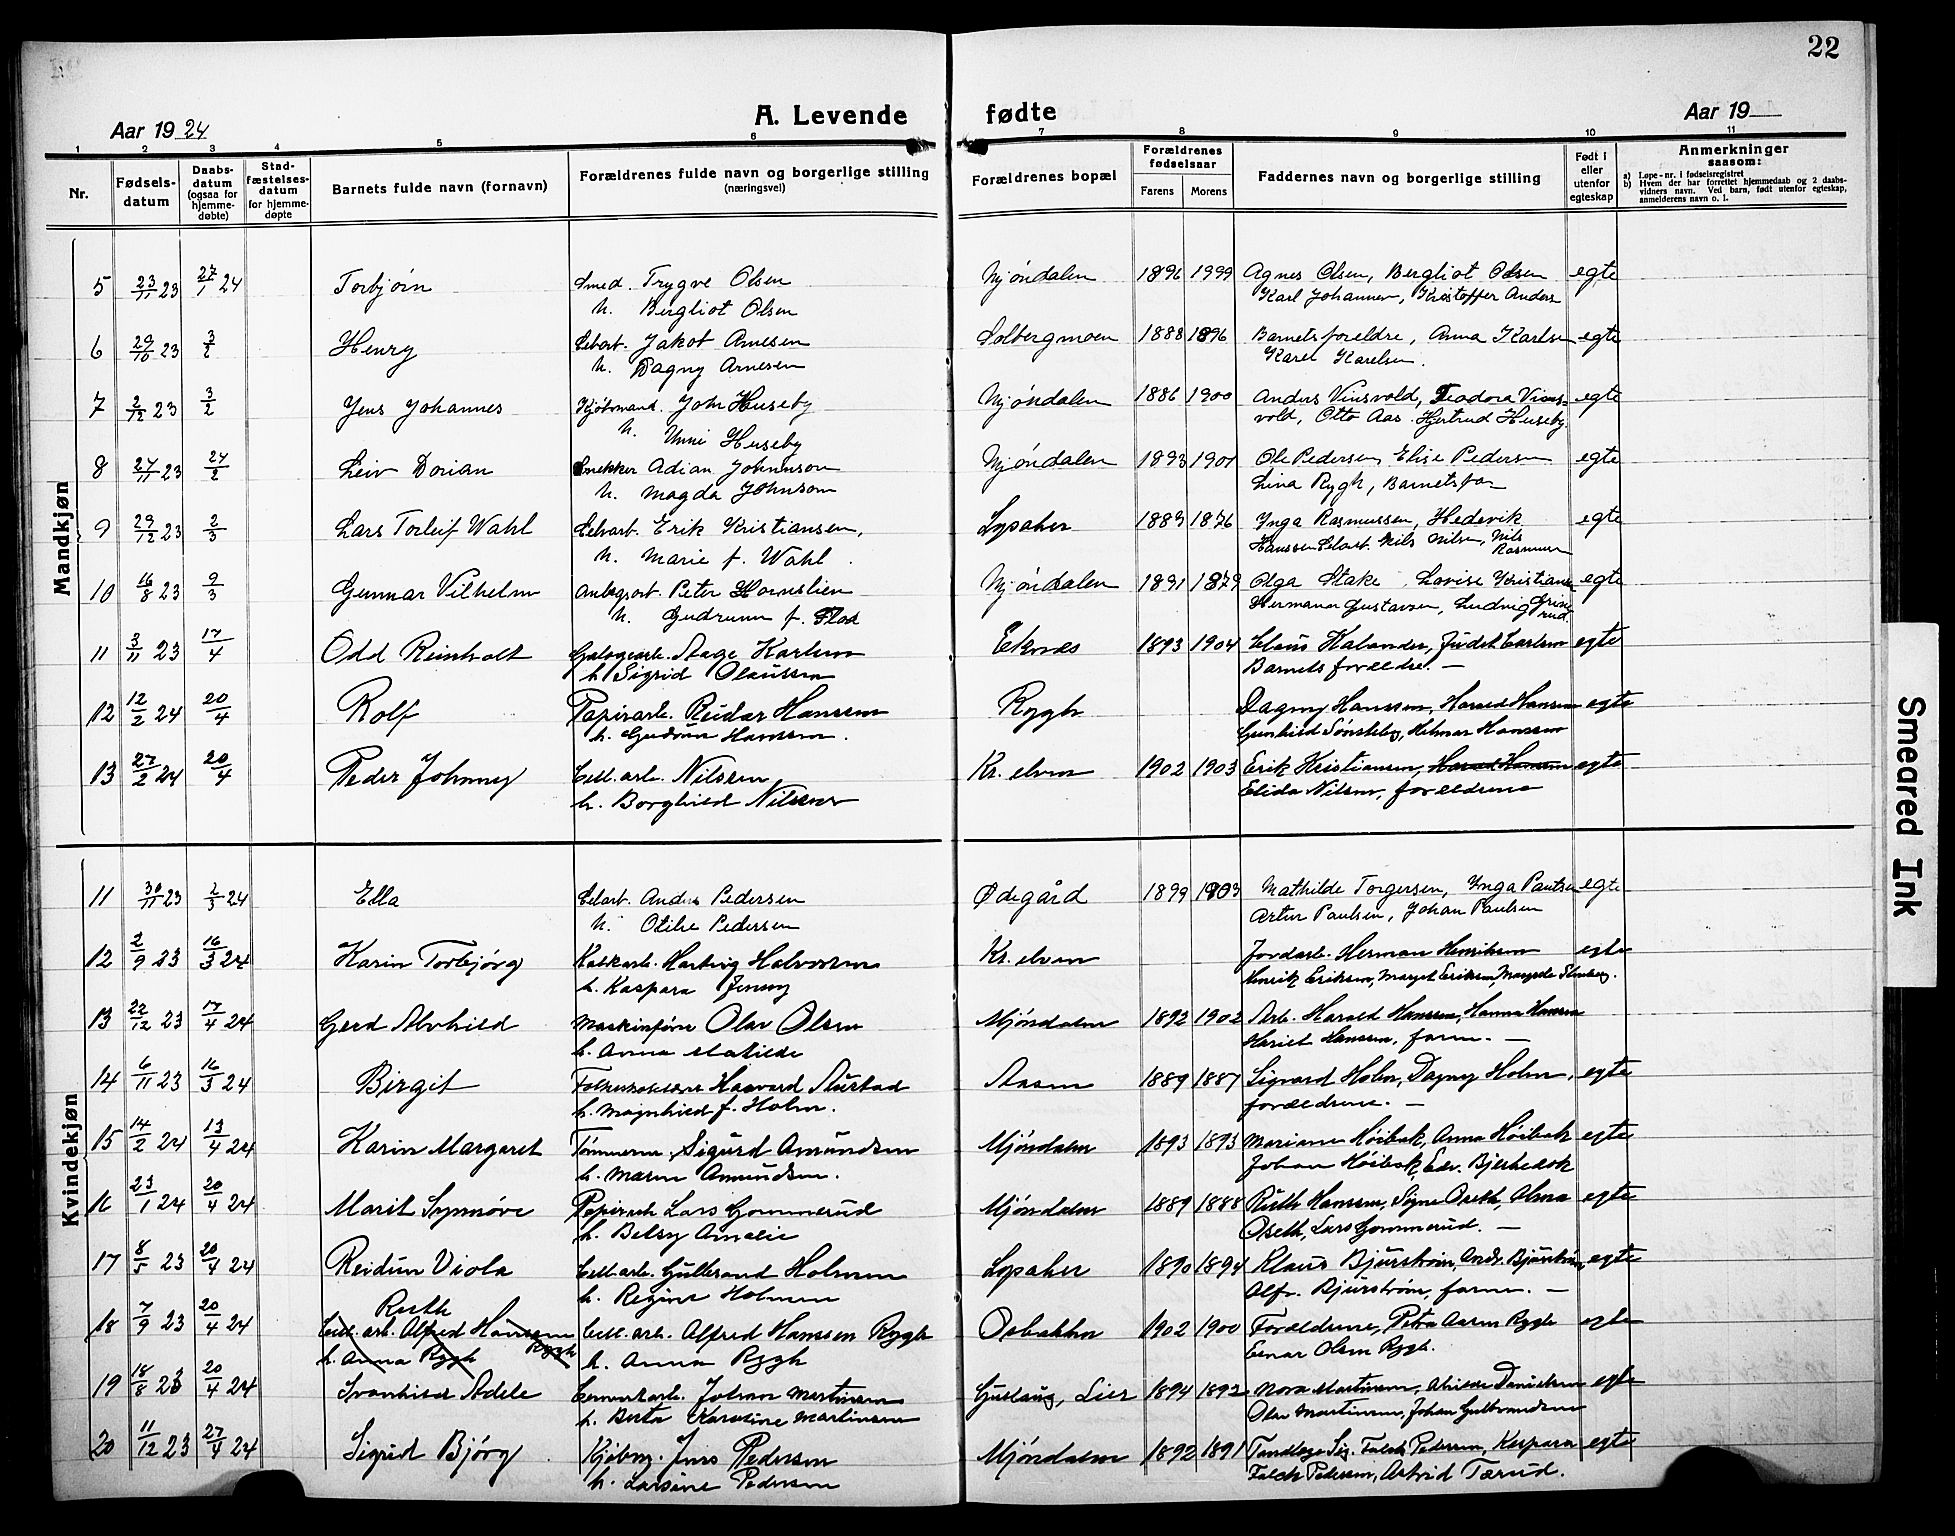 22
A. Levende fødte
Aar 1924
Aar 19
1 2 3 4 5 6 7 8 9 10 11
Nr.
Fødselsdatum
Daabsdatum (ogsaa for hjemmedøbte)
Stadfæstelsesdatum for hjemmedøpte
Barnets fulde navn (fornavn)
Forældrenes fulde navn og borgerlige stilling (næringsvei)
Forældrenes bopæl
Forældrenes fødselsaar
Farens Morens
Faddernes navn og borgerlige stilling
Født i eller utenfor egteskap
Anmerkninger saasom:
a) Løpe-nr. i fødselsregistret
b) Hvem der har forrettet hjemmedaab og 2 daabsvidners navn. Ved barn, født utenfor egteskap, anmelderens navn o. l.
Mandkjøn
5 23/11 23 27/1 24 Torbjørn Smed. Trygve Olsen Mjøndalen 1896 1999 Agnes Olsen, Bergliot Olsen egte
h. Bergliot Olsen Karl Johannsen, Kristoffer Anders
6 29/10 23 3/2 Henry Celarb. Jakob Arnesen Solbergmoen 1888 1896 Barnets foreldre, Anna Karlsen egte
h. Dagny Arnesen Karel Karelsen.
7 2/12 23 3/2 Jens Johannes Kjøbmand. John Huseby Mjøndalen 1886 1900 Anders Vinsvold, Teodora Vins- egte
h. Unni Huseby vold, Otto Aas. Hjertrud Huseby
8 27/11 23 24/2 Leiv Dorian Snekker Adian Johnnson Mjøndalen 1893 1901 Ole Pedersen, Elise Pedersen egte
h. Magda Johnson Lina Rygh, Barnets far
9 29/12 23 2/3 Lars Torleif Wahl Celarb. Erik Kristiansen, Lopaker 1883 1876 Ynga Rasmussen, Hedevik egte
h. Marie f. Wahl Hanssen Celarb. Nils Nilsen, Nils Rasmussen
10 16/8 23 9/3 Gunnar Vilhelm Peter Hornslien Mjøndalen 1891 1879 Olga Stake, Lovise Kristiansen egte
h. Gudrunn f. Flod Hermaner Gustavsen, Ludvig
11 3/11 23 17/4 Odd Reinholt Aage Karlsen Eknes 1893 1904 Claus Kalander, Judit Carlsen egte
h. Sigrid Olaussen Barnets forældre. —
12 12/2 24 20/4 Rolf Papirarb. Reidar Hanssen Rygh Dagny Hanssen, Harald Hansen egte
h. Gudrun Hanssen. Gunhild Sønsteby, Helmar Hanssen
13 27/2 24 20/4 Peder Johnny Cell.arb. Nilssen Kr. elven 1902 1903 Erik Kristiansen, Harald Hansen egte
h. Borghild Nilssen Elida Nilsen, forældrene
Kvindekjøn
11 30/11 23 2/3 24 Ella Celarb. Anders Pedersen Ødegård 1899 1903 Mathilde Torgersen, Ynga Paulsen egte
h. Otilie Pedersen Artur Paulsen, Johan Paulsen
12 2/9 23 16/3 24 Karin Torbjørg Kalkarb. Hartvig Halvorsen Kr. elven Jordarb. Herman Henriksen egte
h. Kaspara Jenny Henrik Eriksen, Margit Eriksen,
13 22/12 23 17/4 24 Gerd Alvhild Maskinfører Olav Olsen Mjöndalen 1892 1902 Arb. Harald Hanssen, Hanna Hansen
h. Anna Matilde Hariet Hanssen, faren. —
14 6/11 23 16/3 24 Birgit Folkeskolelærer Haavard Aurstad Aasen 1889 1887 Sigvard Holm, Dagny Holm, egte
h. Magnhild f. Holm. forældrene. —
15 14/2 24 13/4 24 Karin Margaret Tømmerm. Sigurd Amundsen Mjöndalen 1893 1893 Mariane Höibak, Anna Höibak egte
h. Maren Amundsen. Johan Höibak, Edv. Bjerknok
16 23/1 24 20/4 24 Marit Synnöve Papirarb Lars Gommerud Mjöndalen 1889 1888 Ruth Hanssen, Signe Oseth, Alma egte
h. Betsy Amalie Oseth, Lars Gommerud. —
17 8/5 23 20/4 24 Reidun Viola Cell.arb. Gulbrand Holmen Lopaker 1890 1894 Klaus Bjurström, Andr. Bjurström, egte
h. Regine Holmen Alfr. Bjurström, faren. —
18 7/9 23 20/4 24 Ruth Cell. arb. Alfred Hanssen Rygh Osbakken 1902 1900 Forældrene, Petra Aasen Rygh egte
Cell. arb. Alfred Hanssen Rygh
h. Anna Rygh h. Anna Rygh Einar Olsen Rygh.
19 18/8 23 20/4 24 Svanhild Adele Cementarb. Johan Martinsen Gullaug, Lier 1894 1892 Nora Martinsen, Alvilde Danielsen egte
h. Berta Karoline Martinsen Olav Martinsen, Johan Gulbrandsen
20 11/12 23 27/4 24 Sigrid Björg Kjöbm. Jens Pedersen Mjöndalen 1892 1891 Tandlæge Sig. Falch Pedersen, Kaspara egte
h. Larsine Pedersen Falch Pedersen, Astrid Tærud.
Smeared Ink